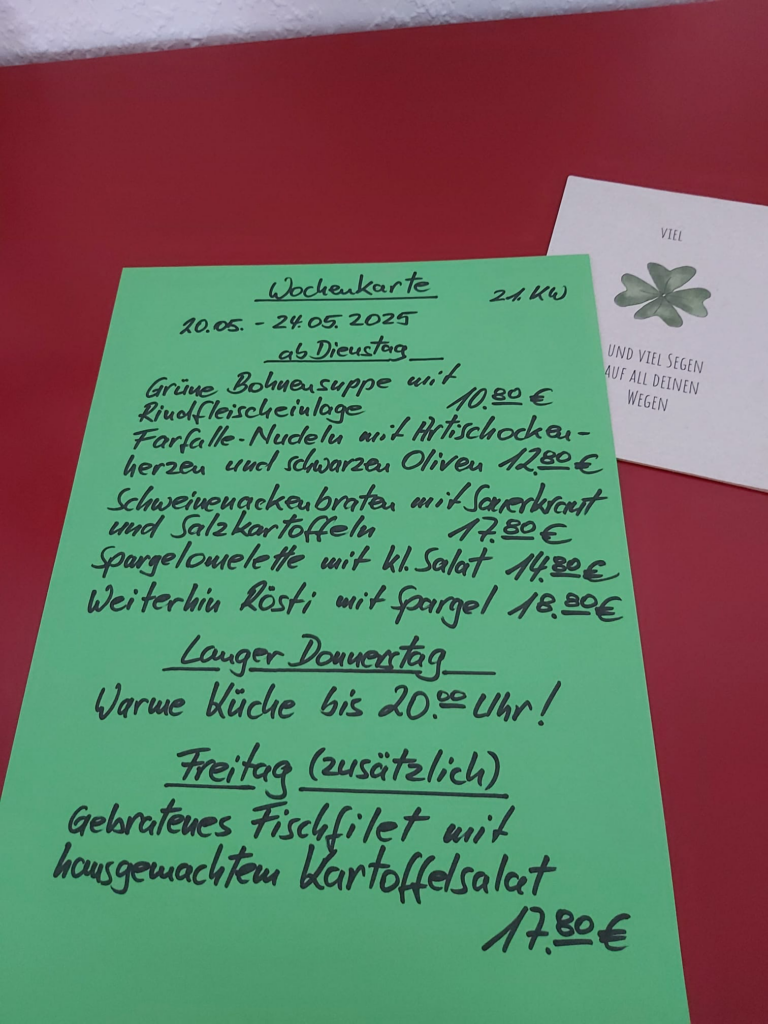 Wochenkarte 21. KW
20.05. - 24.05.2025
ab Dienstag
Grüne Bohnensuppe mit
Rindfleischeinlage 10.80 €
Farfalle-Nudeln mit Artischocken-
herzen und schwarzen Oliven 12.80 €
Schweinenackenbraten mit Sauerkraut
und Salzkartoffeln 17.80 €
Spargelomelette mit kl. Salat 14.80 €
Weiterhin Rösti mit Spargel 18.80 €
Langer Donnerstag
Warme Küche bis 20.00 Uhr!
Freitag (zusätzlich)
Gebratenes Fischfilet mit
hausgemachtem Kartoffelsalat
17.80 €
VIEL
UND VIEL SEGEN
AUF ALL DEINEN
WEGEN